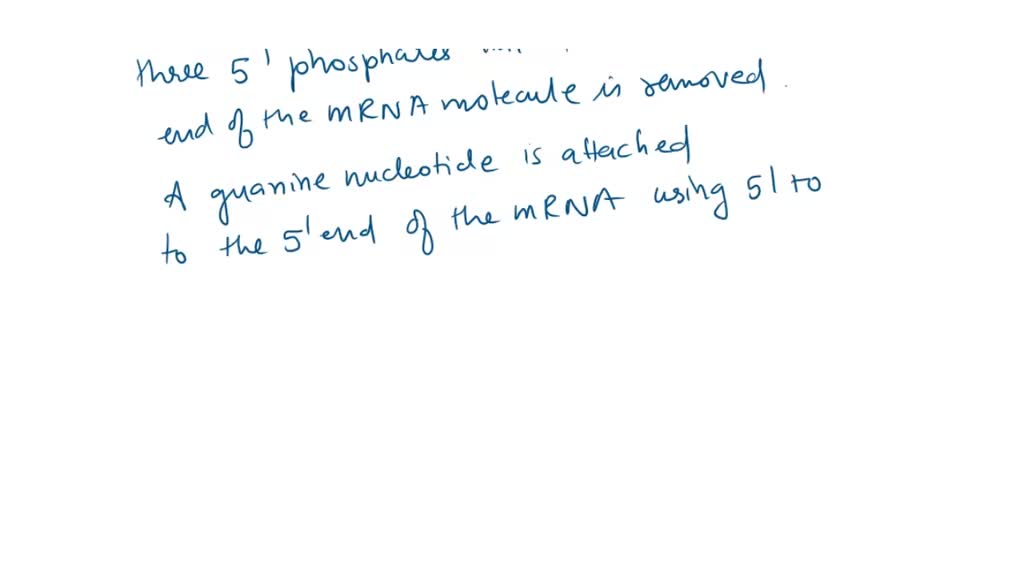 three 5' phosphates
end of the mRNA molecule is removed.
A guanine nucleotide is attached
to the 5' end of the mRNA using 5' to